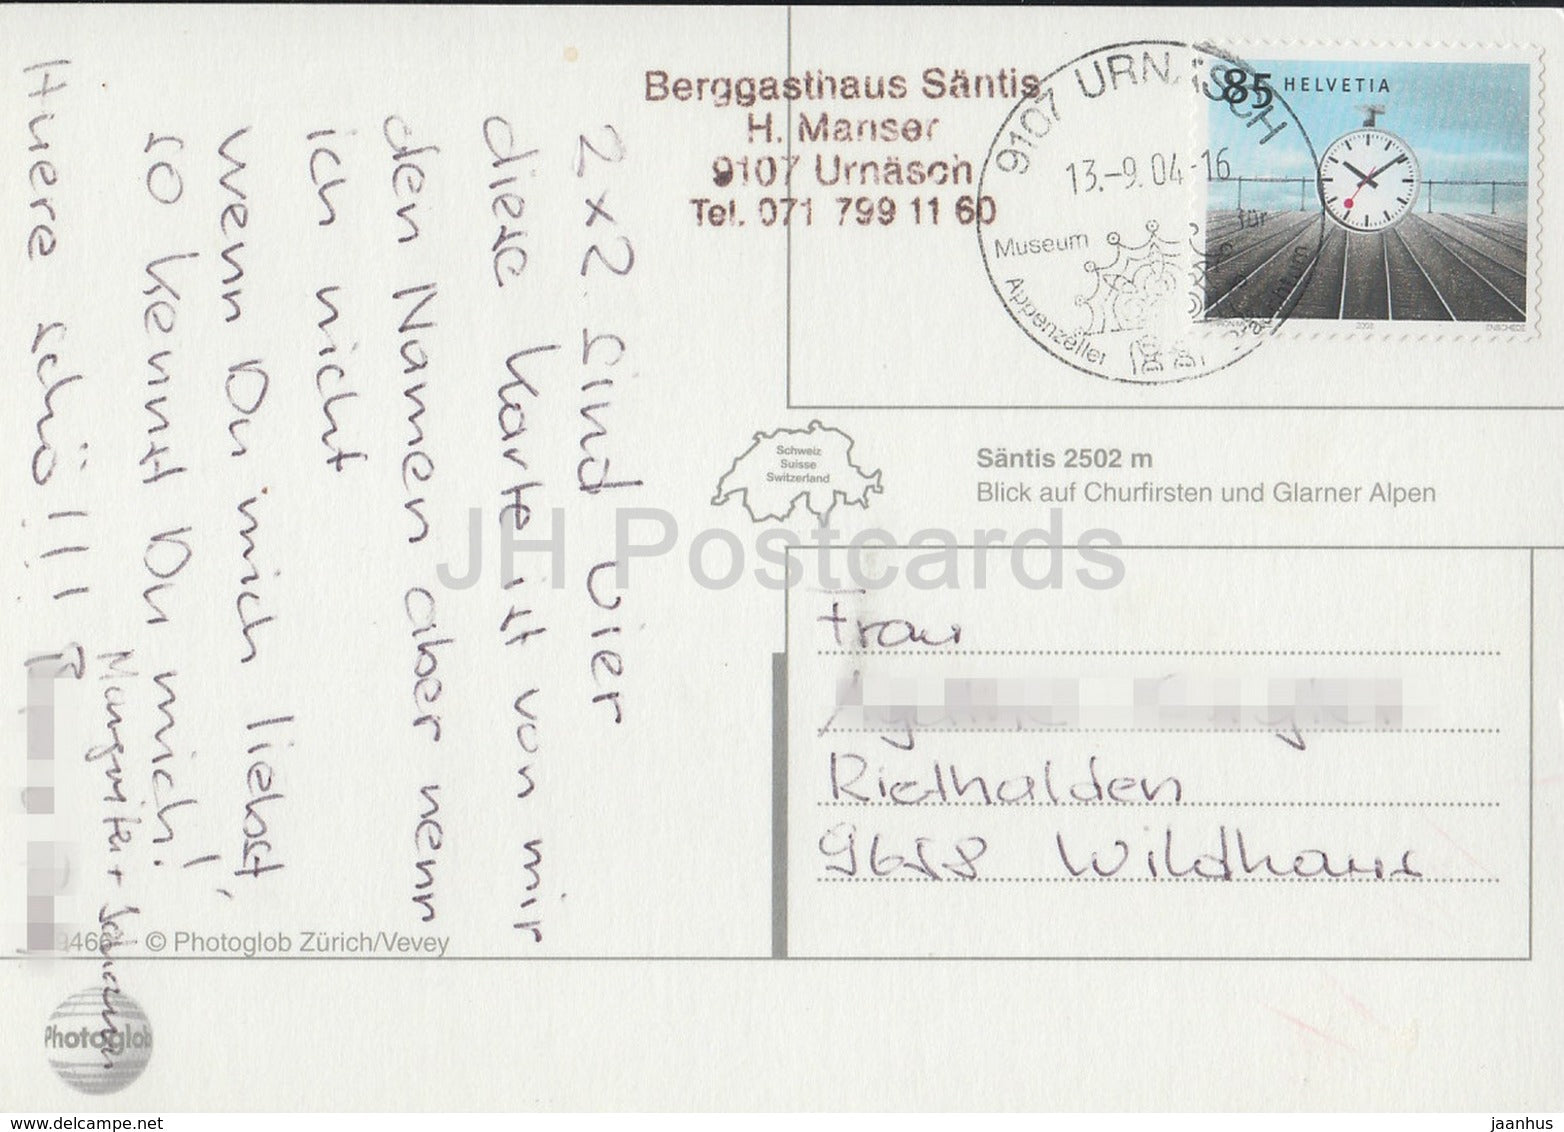 2x2 sind vier
diese Karte ist von mir
den Namen aber nenn
ich nicht
wenn Du mich liebst,
so kennst Du mich!
Huere schö!!!
Berggasthaus Säntis
H. Manser
9107 Urnäsch
Tel. 071 799 11 60
9107 URNÄSCH
13.-9.04-16
Museum für
Appenzeller Brauchtum
85 HELVETIA
ENSCHEDE
Schweiz
Suisse
Switzerland
Säntis 2502 m
Blick auf Churfirsten und Glarner Alpen
JH Postcards
Frau
Riethalden
9658 Wildhaus
© Photoglob Zürich/Vevey
Photoglob
www.delcampe.net
jaanhus